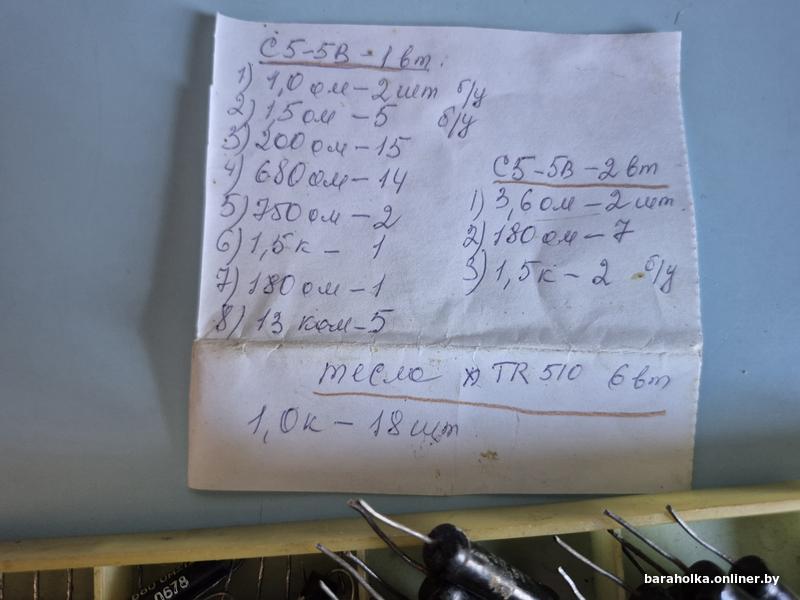 С5-5В - 1 вт.
1) 1,0 ом - 2 шт б/у
2) 1,5 ом - 5 б/у
3) 200 ом - 15
4) 680 ом - 14
5) 750 ом - 2
6) 1,5 к - 1
7) 180 ом - 1
8) 13 ком - 5
С5-5В - 2 вт
1) 3,6 ом - 2 шт.
2) 180 ом - 7
3) 1,5 к - 2 б/у
тесла TR 510 6 вт
1,0 к - 18 шт
0678
baraholka.onliner.by